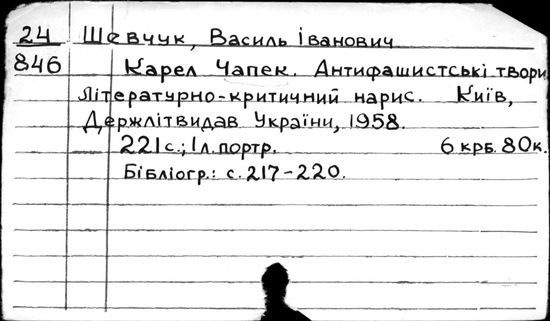 24 Шевчук, Василь Іванович
846 Карел Чапек. Антифашистські твори
Літературно-критичний нарис. Київ,
Держлітвидав України, 1958.
221 с.; 1 л. портр. 6 крб. 80 к.
Бібліогр.: с. 217-220.